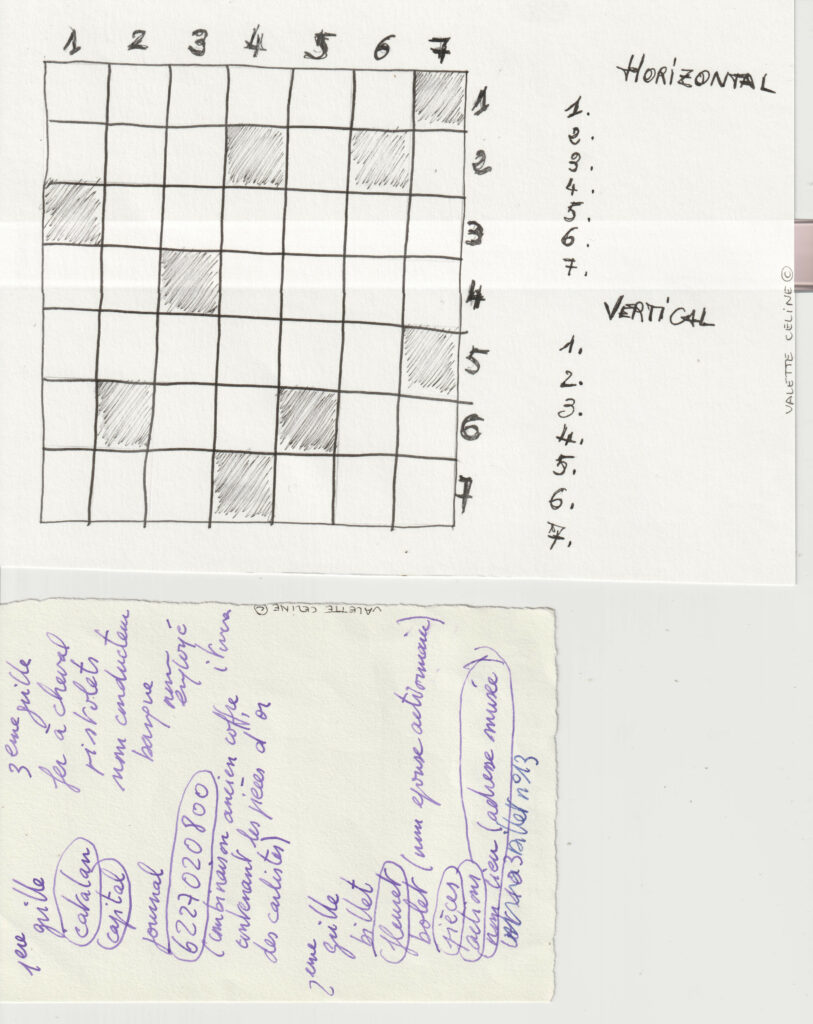 1 2 3 4 5 6 7
1
2
3
4
5
6
7
HORIZONTAL
1.
2.
3.
4.
5.
6.
7.
VERTICAL
1.
2.
3.
4.
5.
6.
7.
VALETTE CELINE ©
VALETTE CELINE ©
1ere
grille
catalan
capital
journal
6227020800
(combinaison ancien coffre
contenant les pièces d'or
des carlistes)
2eme
grille
billet
fleuret
bolet (nom epouse actionnaire)
pièces
actions
nom lieu (adresse musée)
3 juillet n°13
3eme grille
fer à cheval
pistolets
nom conducteur
barque
nom
employé